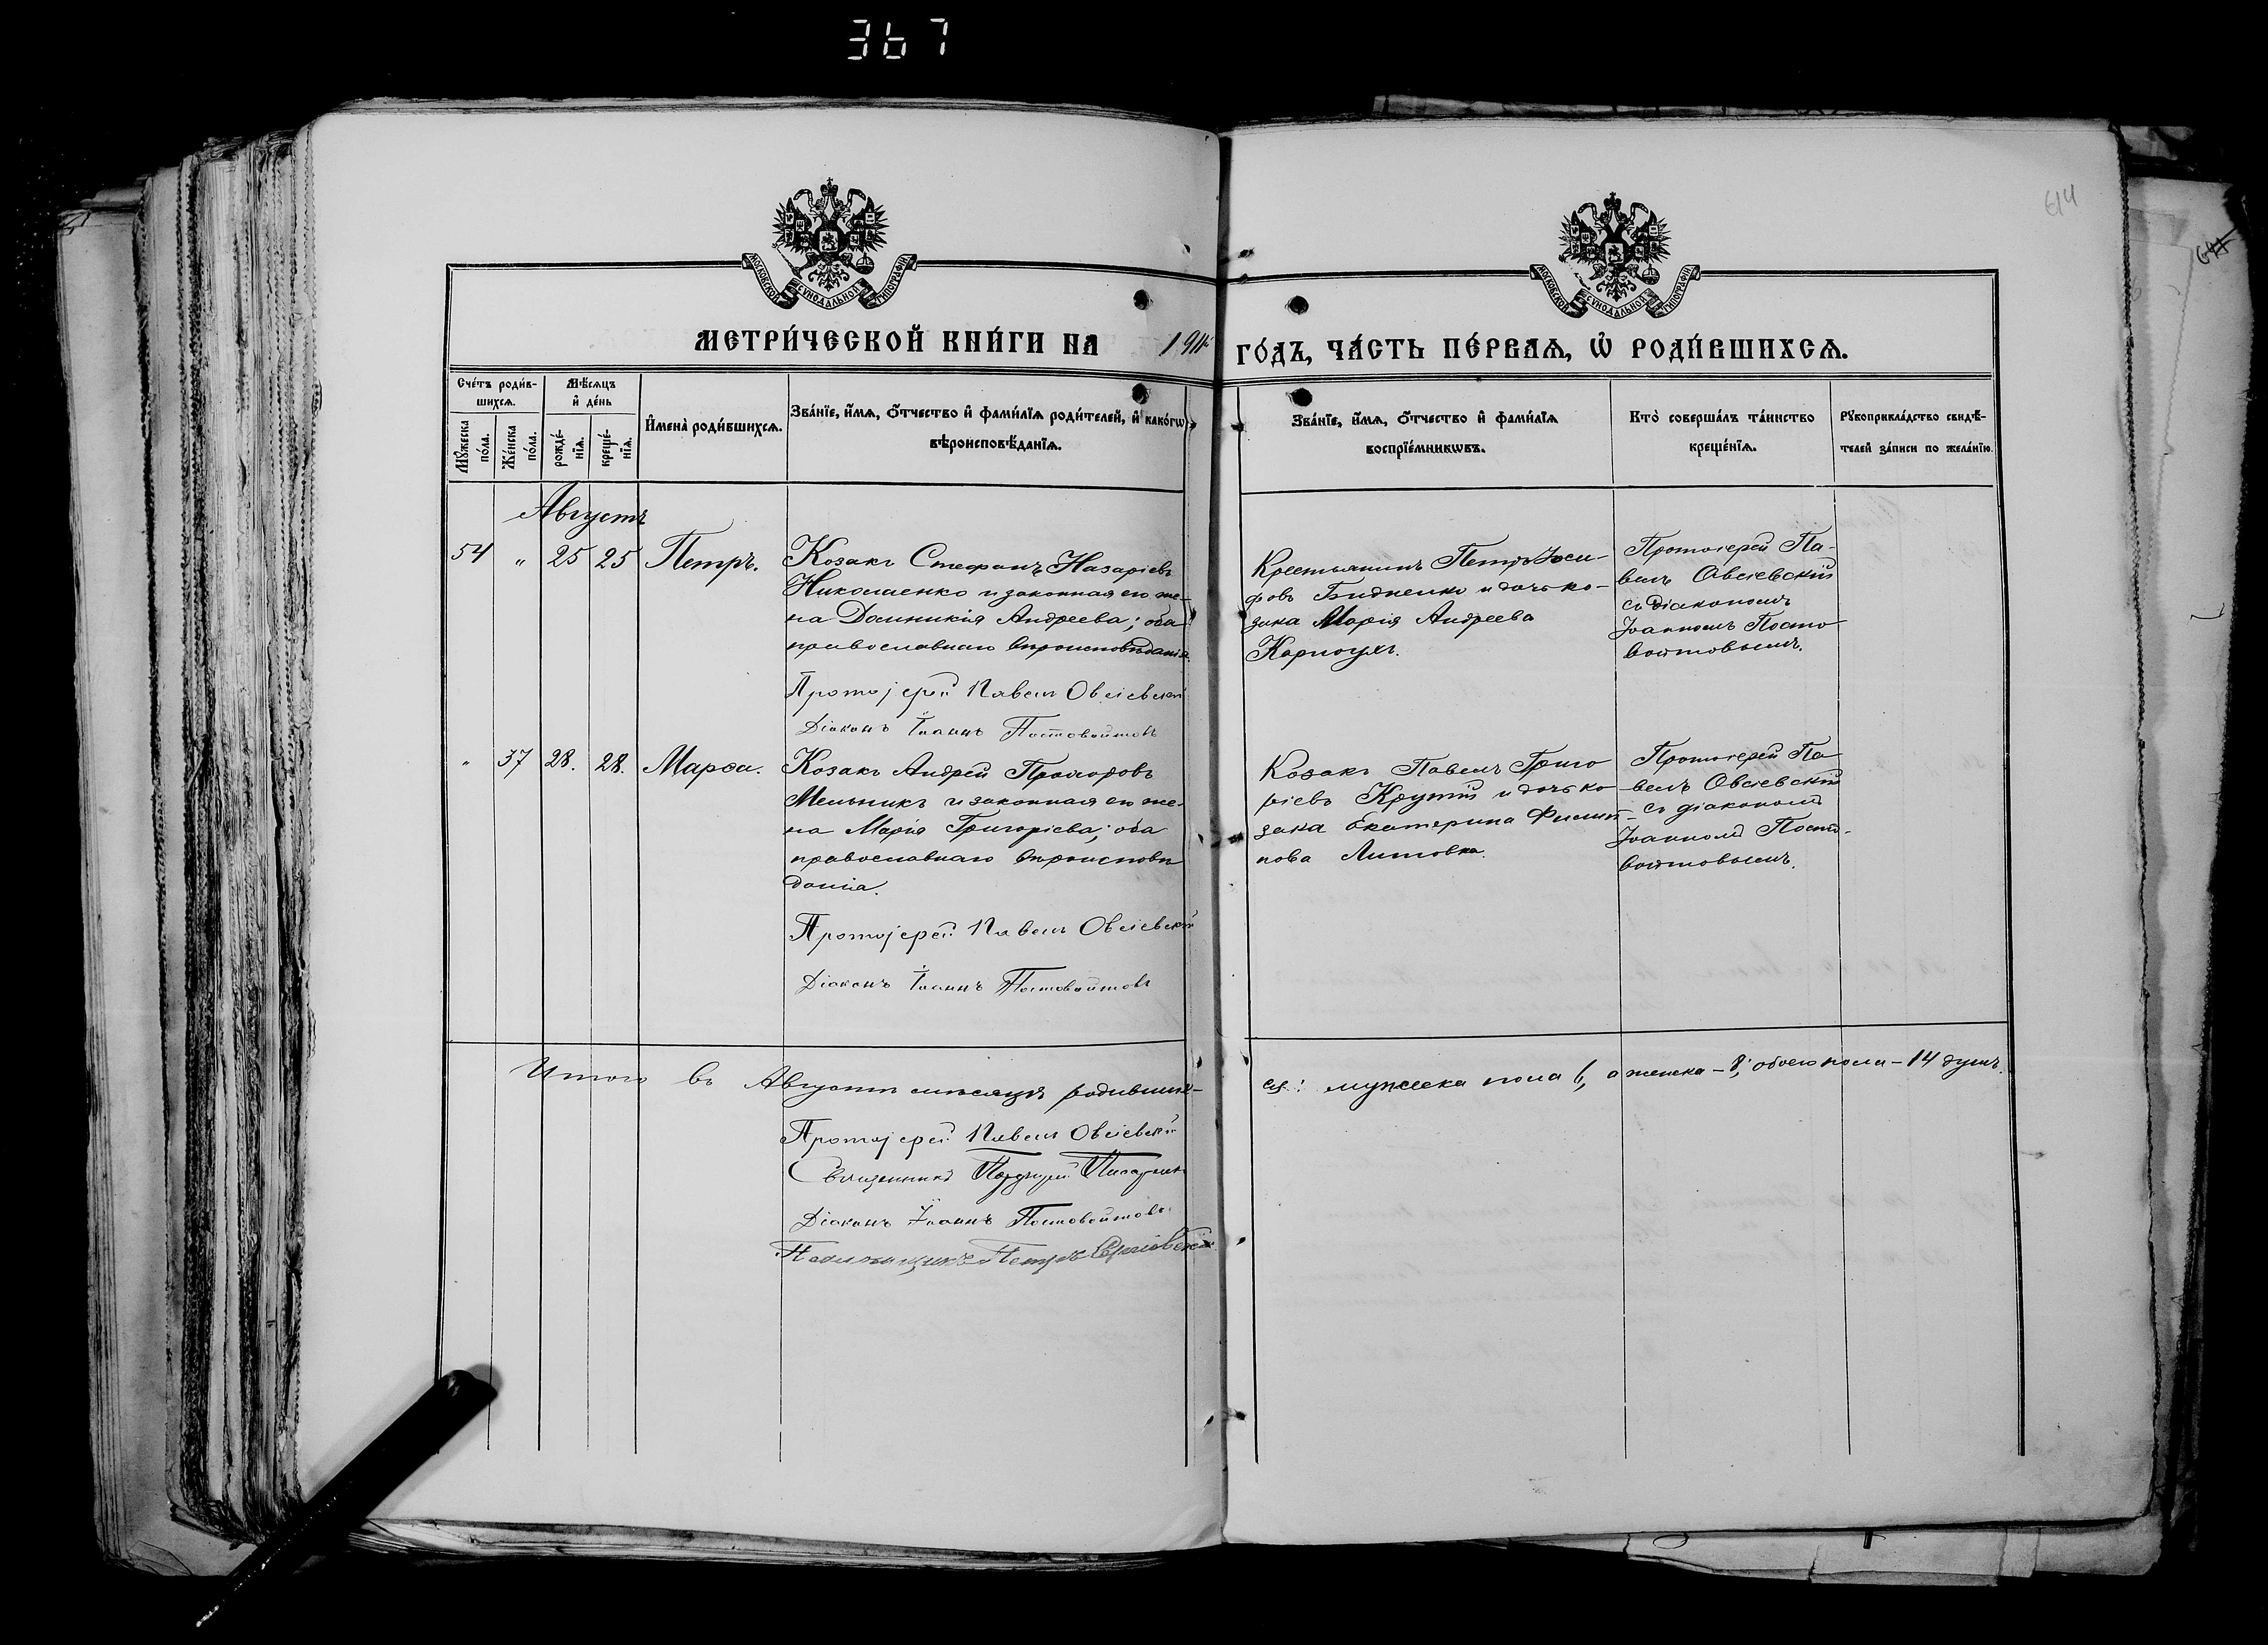 367
614
МОСКОВСКОЙ СѴНОДАЛЬНОЙ ТИПОГРАФІИ
МОСКОВСКОЙ СѴНОДАЛЬНОЙ ТИПОГРАФІИ
МЕТРИ́ЧЕСКОЙ КНИ́ГИ НА 191 ГО́ДЪ, ЧА́СТЬ ПЕ́РВАѦ, Ѡ҆ РОДИ́ВШИХСѦ.
Сче́тъ роди́в-
шихсѧ.
Мꙋ́жеска по́ла.
Же́нска по́ла.
Мѣ́сѧцъ
и҆ де́нь
рожде́-нїѧ.
креще́-нїѧ.
И҆мена̀ роди́вшихсѧ.
Зва́нїе, и҆́мѧ, ѻ҆́тчество и҆ фами́лїѧ роди́телей, и҆ како́гѡ
вѣроисповѣ́данїѧ.
Зва́нїе, и҆́мѧ, ѻ҆́тчество и҆ фами́лїѧ
воспрїе́мникѡвъ.
Кто̀ соверша́лъ та́инство
креще́нїѧ.
Рꙋкоприкла́дство свидѣ́-
телей за́писи по жела́нїю.
Августъ
54 " 25 25 Петръ.
Козакъ Стефанъ Назаріевъ
Николаенко и законная его же-
на Домникія Андреева; оба
православнаго вѣроисповѣданія.
Протоіерей Павелъ Овсіевскій
Діаконъ Іоаннъ Постовойтовъ
Крестьянинъ Петръ Іоси-
фовъ Бидненко и дочь ко-
зака Марія Андреева
Карпоухъ.
Протоіерей Па-
велъ Овсіевскій
съ діакономъ
Іоанномъ Посто-
войтовымъ.
" 37 28. 28. Марѳа.
Козакъ Андрей Прохоровъ
Мельникъ и законная его же-
на Марія Григоріева; оба
православнаго вѣроисповѣ
данія.
Протоіерей Павелъ Овсіевскій
Діаконъ Іоаннъ Постовойтовъ
Козакъ Павелъ Григо
ріевъ Крутій и дочь ко
зака Екатерина Филип-
пова Литовка.
Протоіерей Па
велъ Овсіевскій
съ діакономъ
Іоанномъ Посто-
войтовымъ.
Итого въ Августѣ мѣсяцѣ родивших-
ся: мужеска пола 6, а женска – 8; обоего пола – 14 душъ.
Протоіерей Павелъ Овсіевскій
Священникъ
Діаконъ Іоаннъ Постовойтовъ
Псаломщикъ Петръ